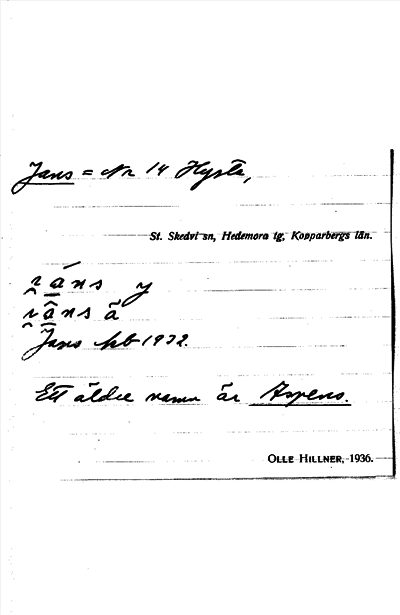 Jans = Nr 14 Hysta,
St. Skedvi sn, Hedemora tg, Kopparbergs län.
i̯áns y
i̯âns ã
Jans kb 1932.
Ett äldre namn är Aspens.
OLLE HILLNER, 1936.